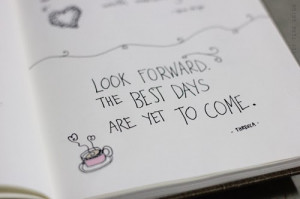 LOOK FORWARD.
THE BEST DAYS
ARE YET TO COME.